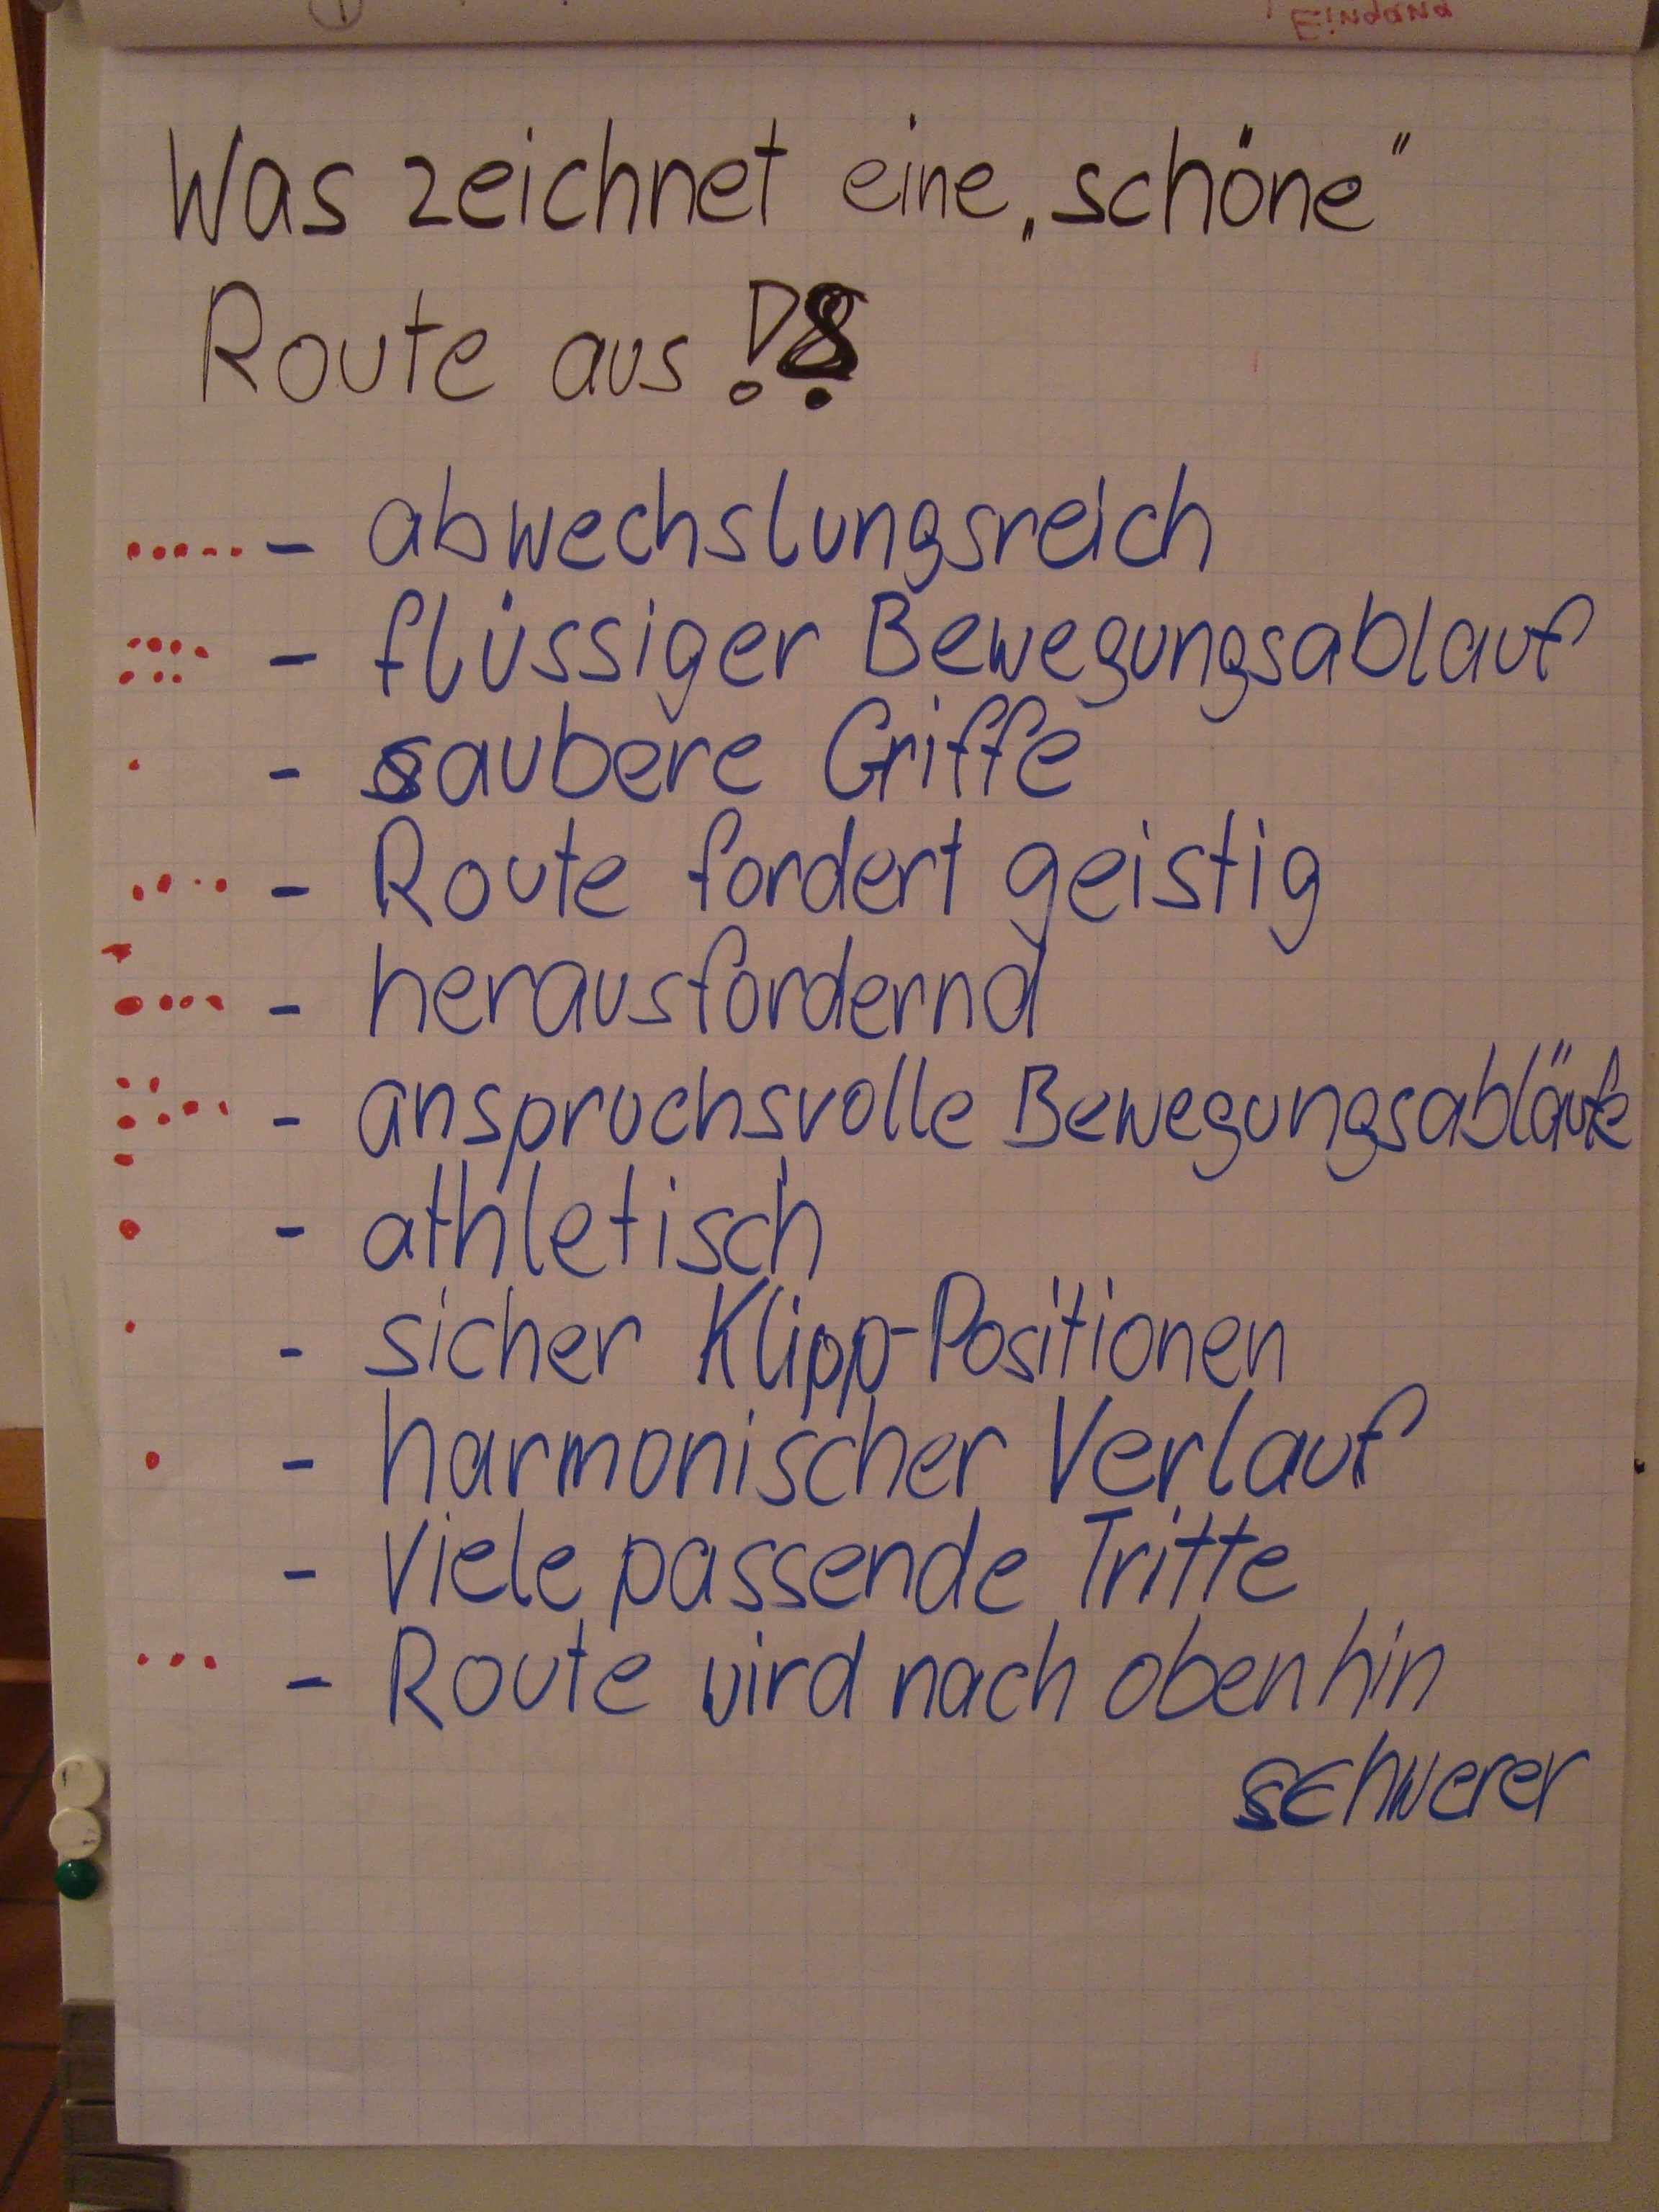 Eingang
Was zeichnet eine „schöne"
Route aus !?
- abwechslungsreich
- flüssiger Bewegungsablauf
- saubere Griffe
- Route fordert geistig
- herausfordernd
- anspruchsvolle Bewegungsabläufe
- athletisch
- sicher Klipp-Positionen
- harmonischer Verlauf
- Viele passende Tritte
- Route wird nach oben hin
schwerer